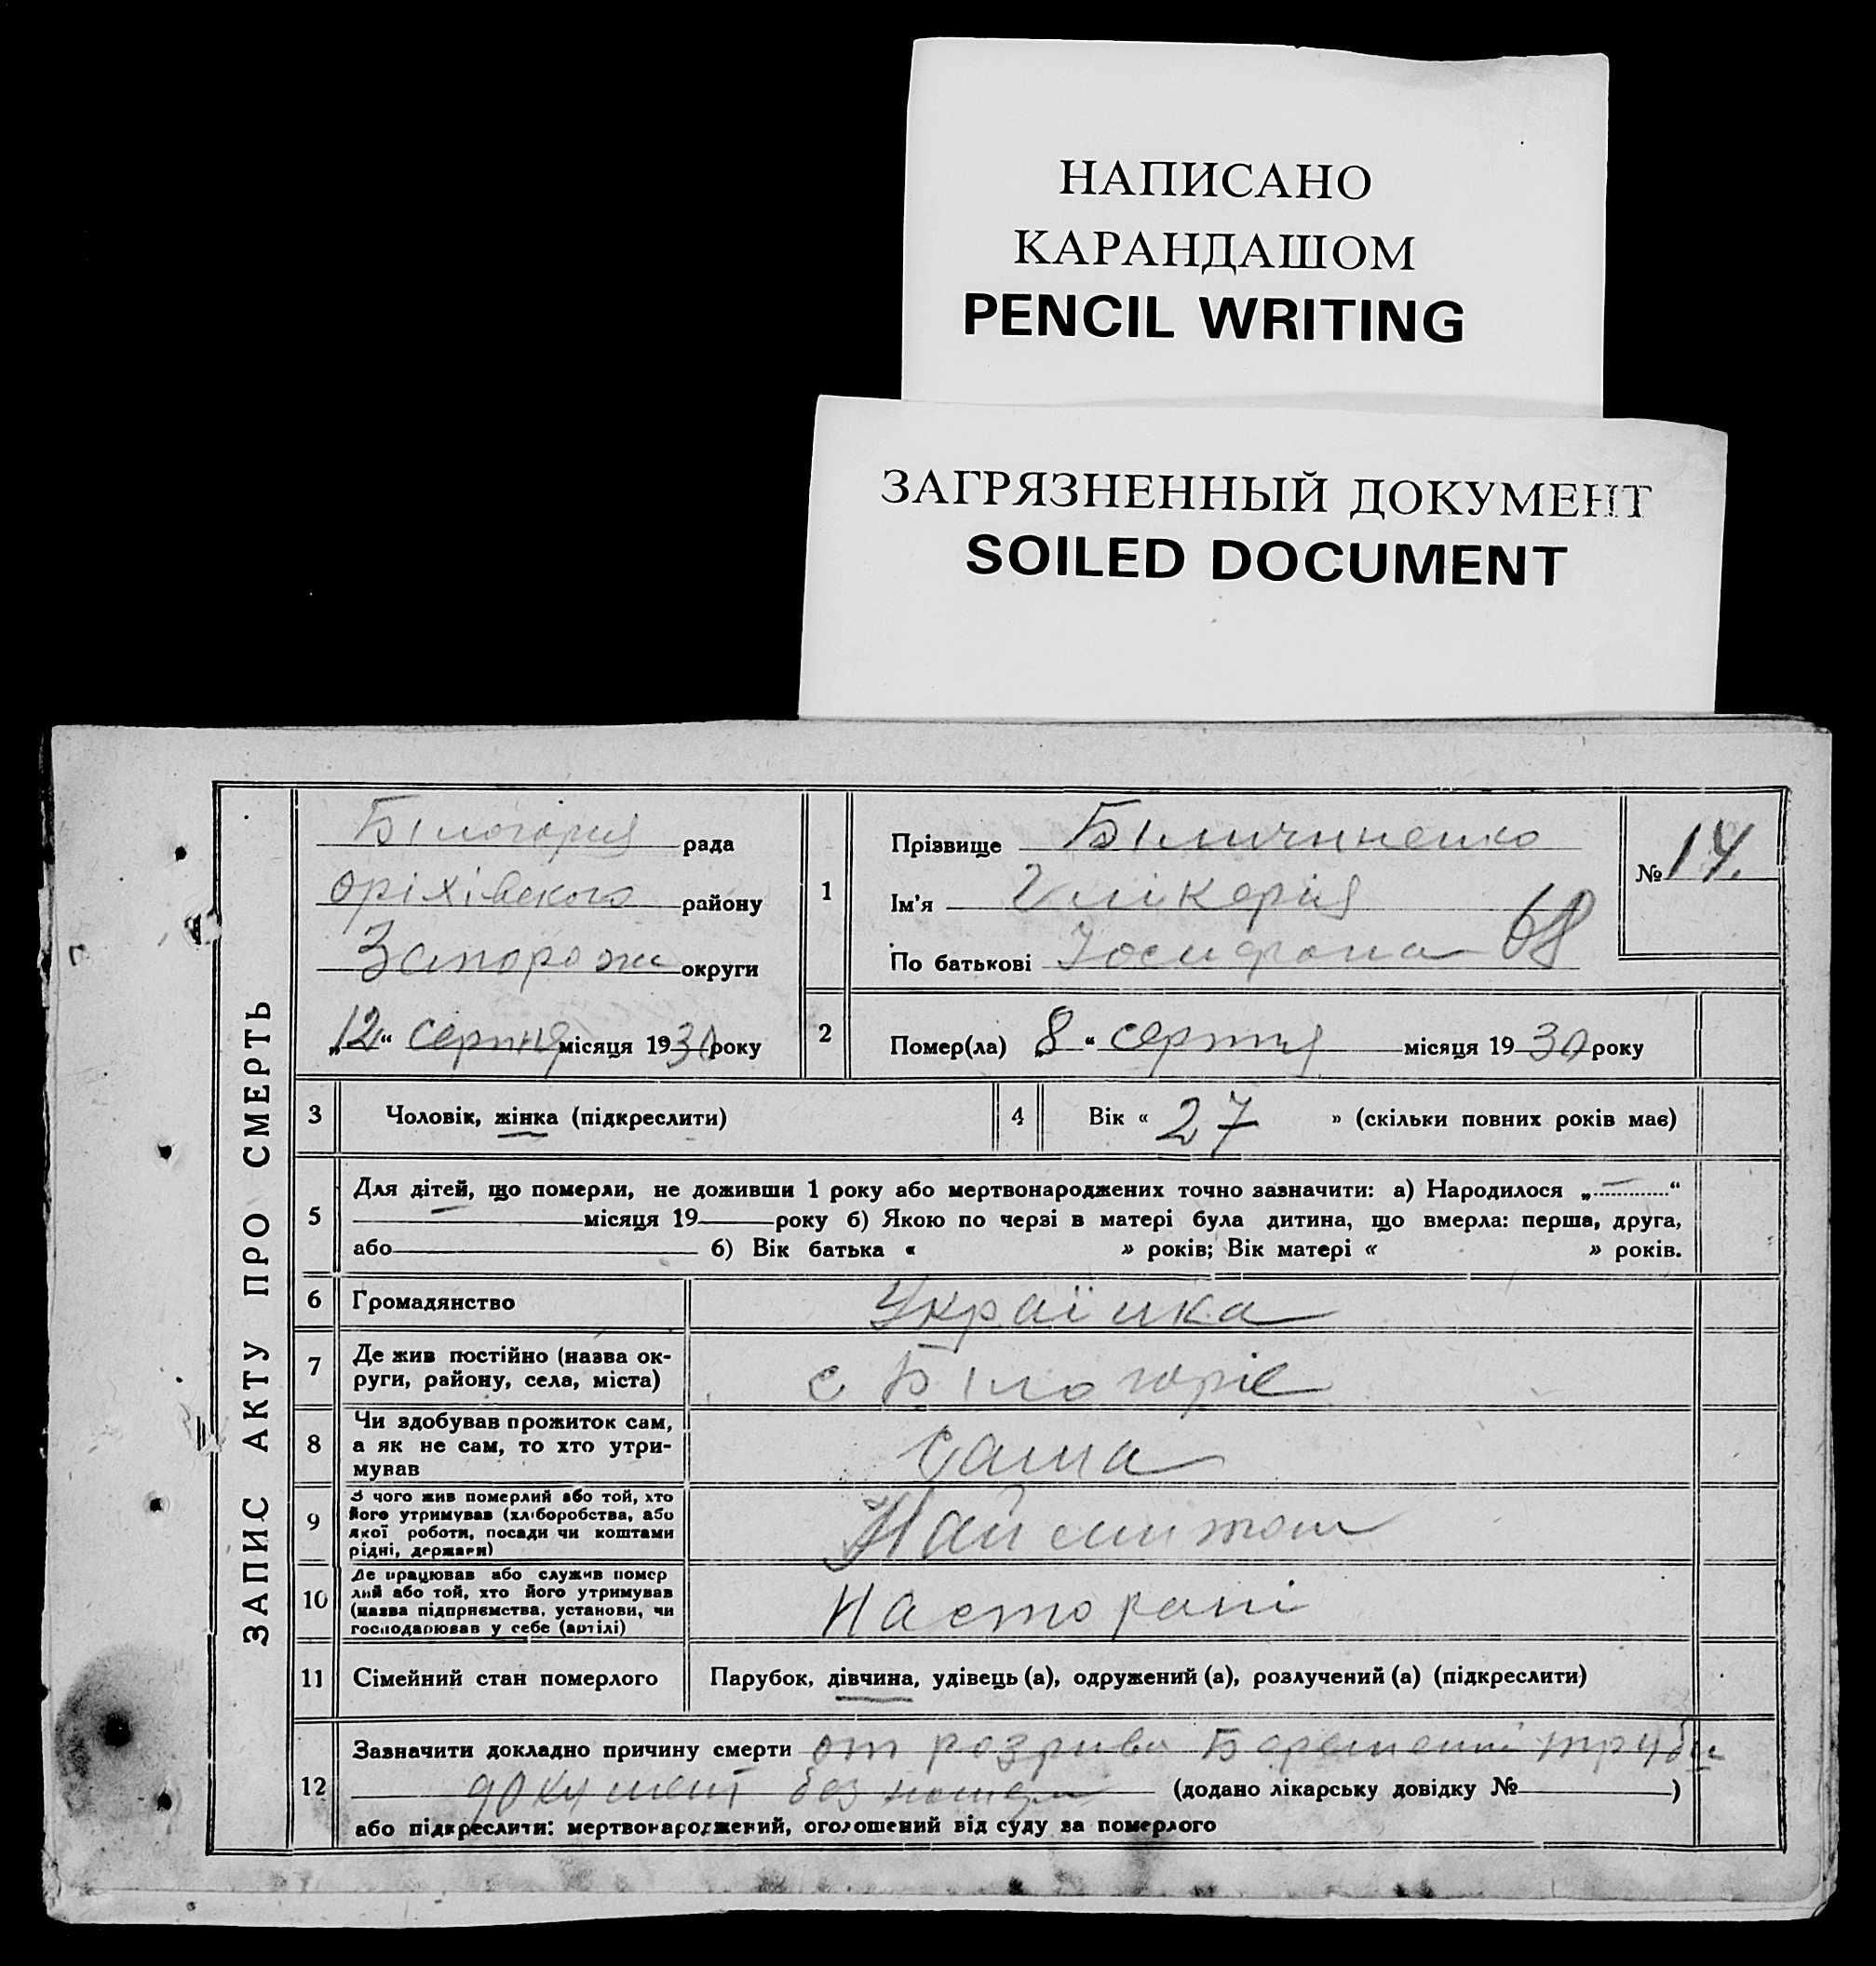 НАПИСАНО
КАРАНДАШОМ
PENCIL WRITING
ЗАГРЯЗНЕННЫЙ ДОКУМЕНТ
SOILED DOCUMENT
ЗАПИС АКТУ ПРО СМЕРТЬ
Білогория рада
Оріхівского району
Запорожи округи
„12“ серпня місяця 1930 року
1 Прізвище Біличиненко
Ім'я Глікерия
По батькові 68
№ 14.
2 Помер(ла) „8“ серпня місяця 1930 року
3 Чоловік, жінка (підкреслити)
4 Вік « 27 » (скільки повних років має)
5 Для дітей, що померли, не доживши 1 року або мертвонароджених точно зазначити: а) Народилося „ — “
місяця 19 року б) Якою по черзі в матері була дитина, що вмерла: перша, друга,
або б) Вік батька « » років; Вік матері « » років.
6 Громадянство Українка
7 Де жив постійно (назва ок-
руги, району, села, міста)
с Білогоріє
8 Чи здобував прожиток сам,
а як не сам, то хто утри-
мував
сама
9 З чого жив померлий або той, хто
його утримував (хліборобства, або
якої роботи, посади чи коштами
рідні, держави)
Наймитом
10 Де працював або служив помер
лий або той, хто його утримував
(назва підприємства, установи, чи
господарював у себе (артілі)
На стороні
11 Сімейний стан померлого Парубок, дівчина, удівець (а), одружений (а), розлучений (а) (підкреслити)
12 Зазначити докладно причину смерти от розрива труби
документ без (додано лікарську довідку № )
або підкреслити: мертвонароджений, оголошений від суду за померлого